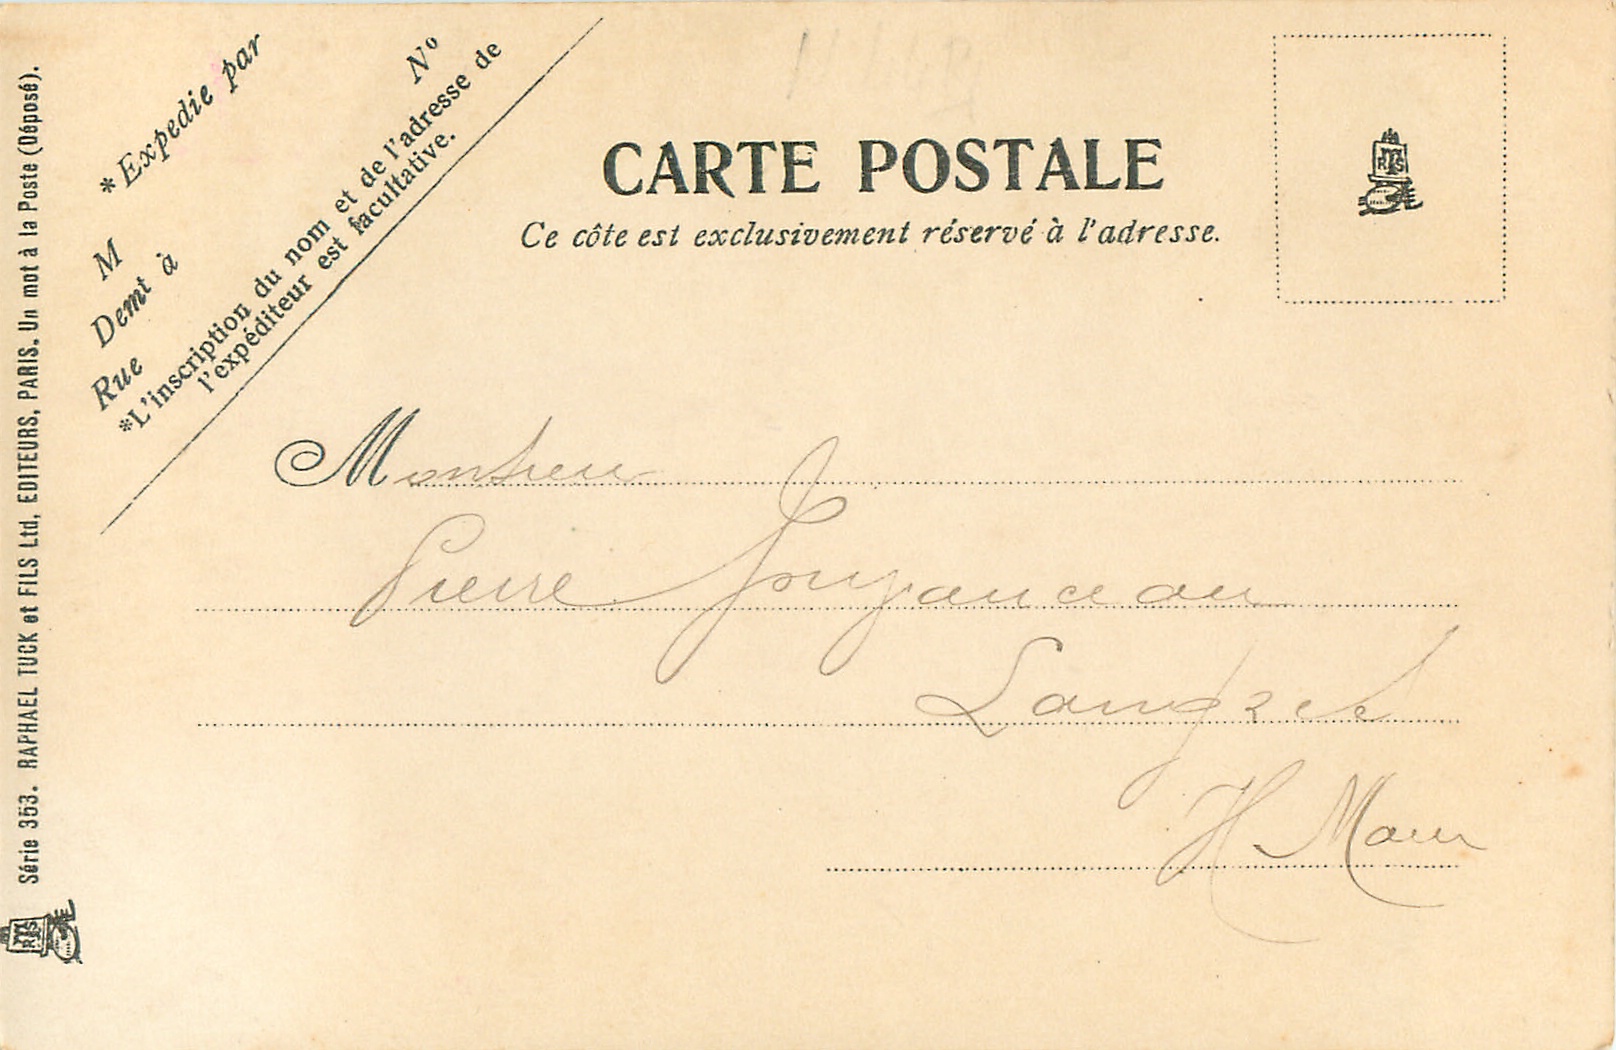 * Expedie par
M
Demt à
Rue
N°
*L'inscription du nom et de l'adresse de
l'expéditeur est facultative.
CARTE POSTALE
Ce côte est exclusivement réservé à l'adresse.
RTS
Monsieur
Pierre
Langres
H Marne
Série 353. RAPHAEL TUCK et FILS Ltd, EDITEURS, PARIS. Un mot à la Poste (Déposé).
RTS